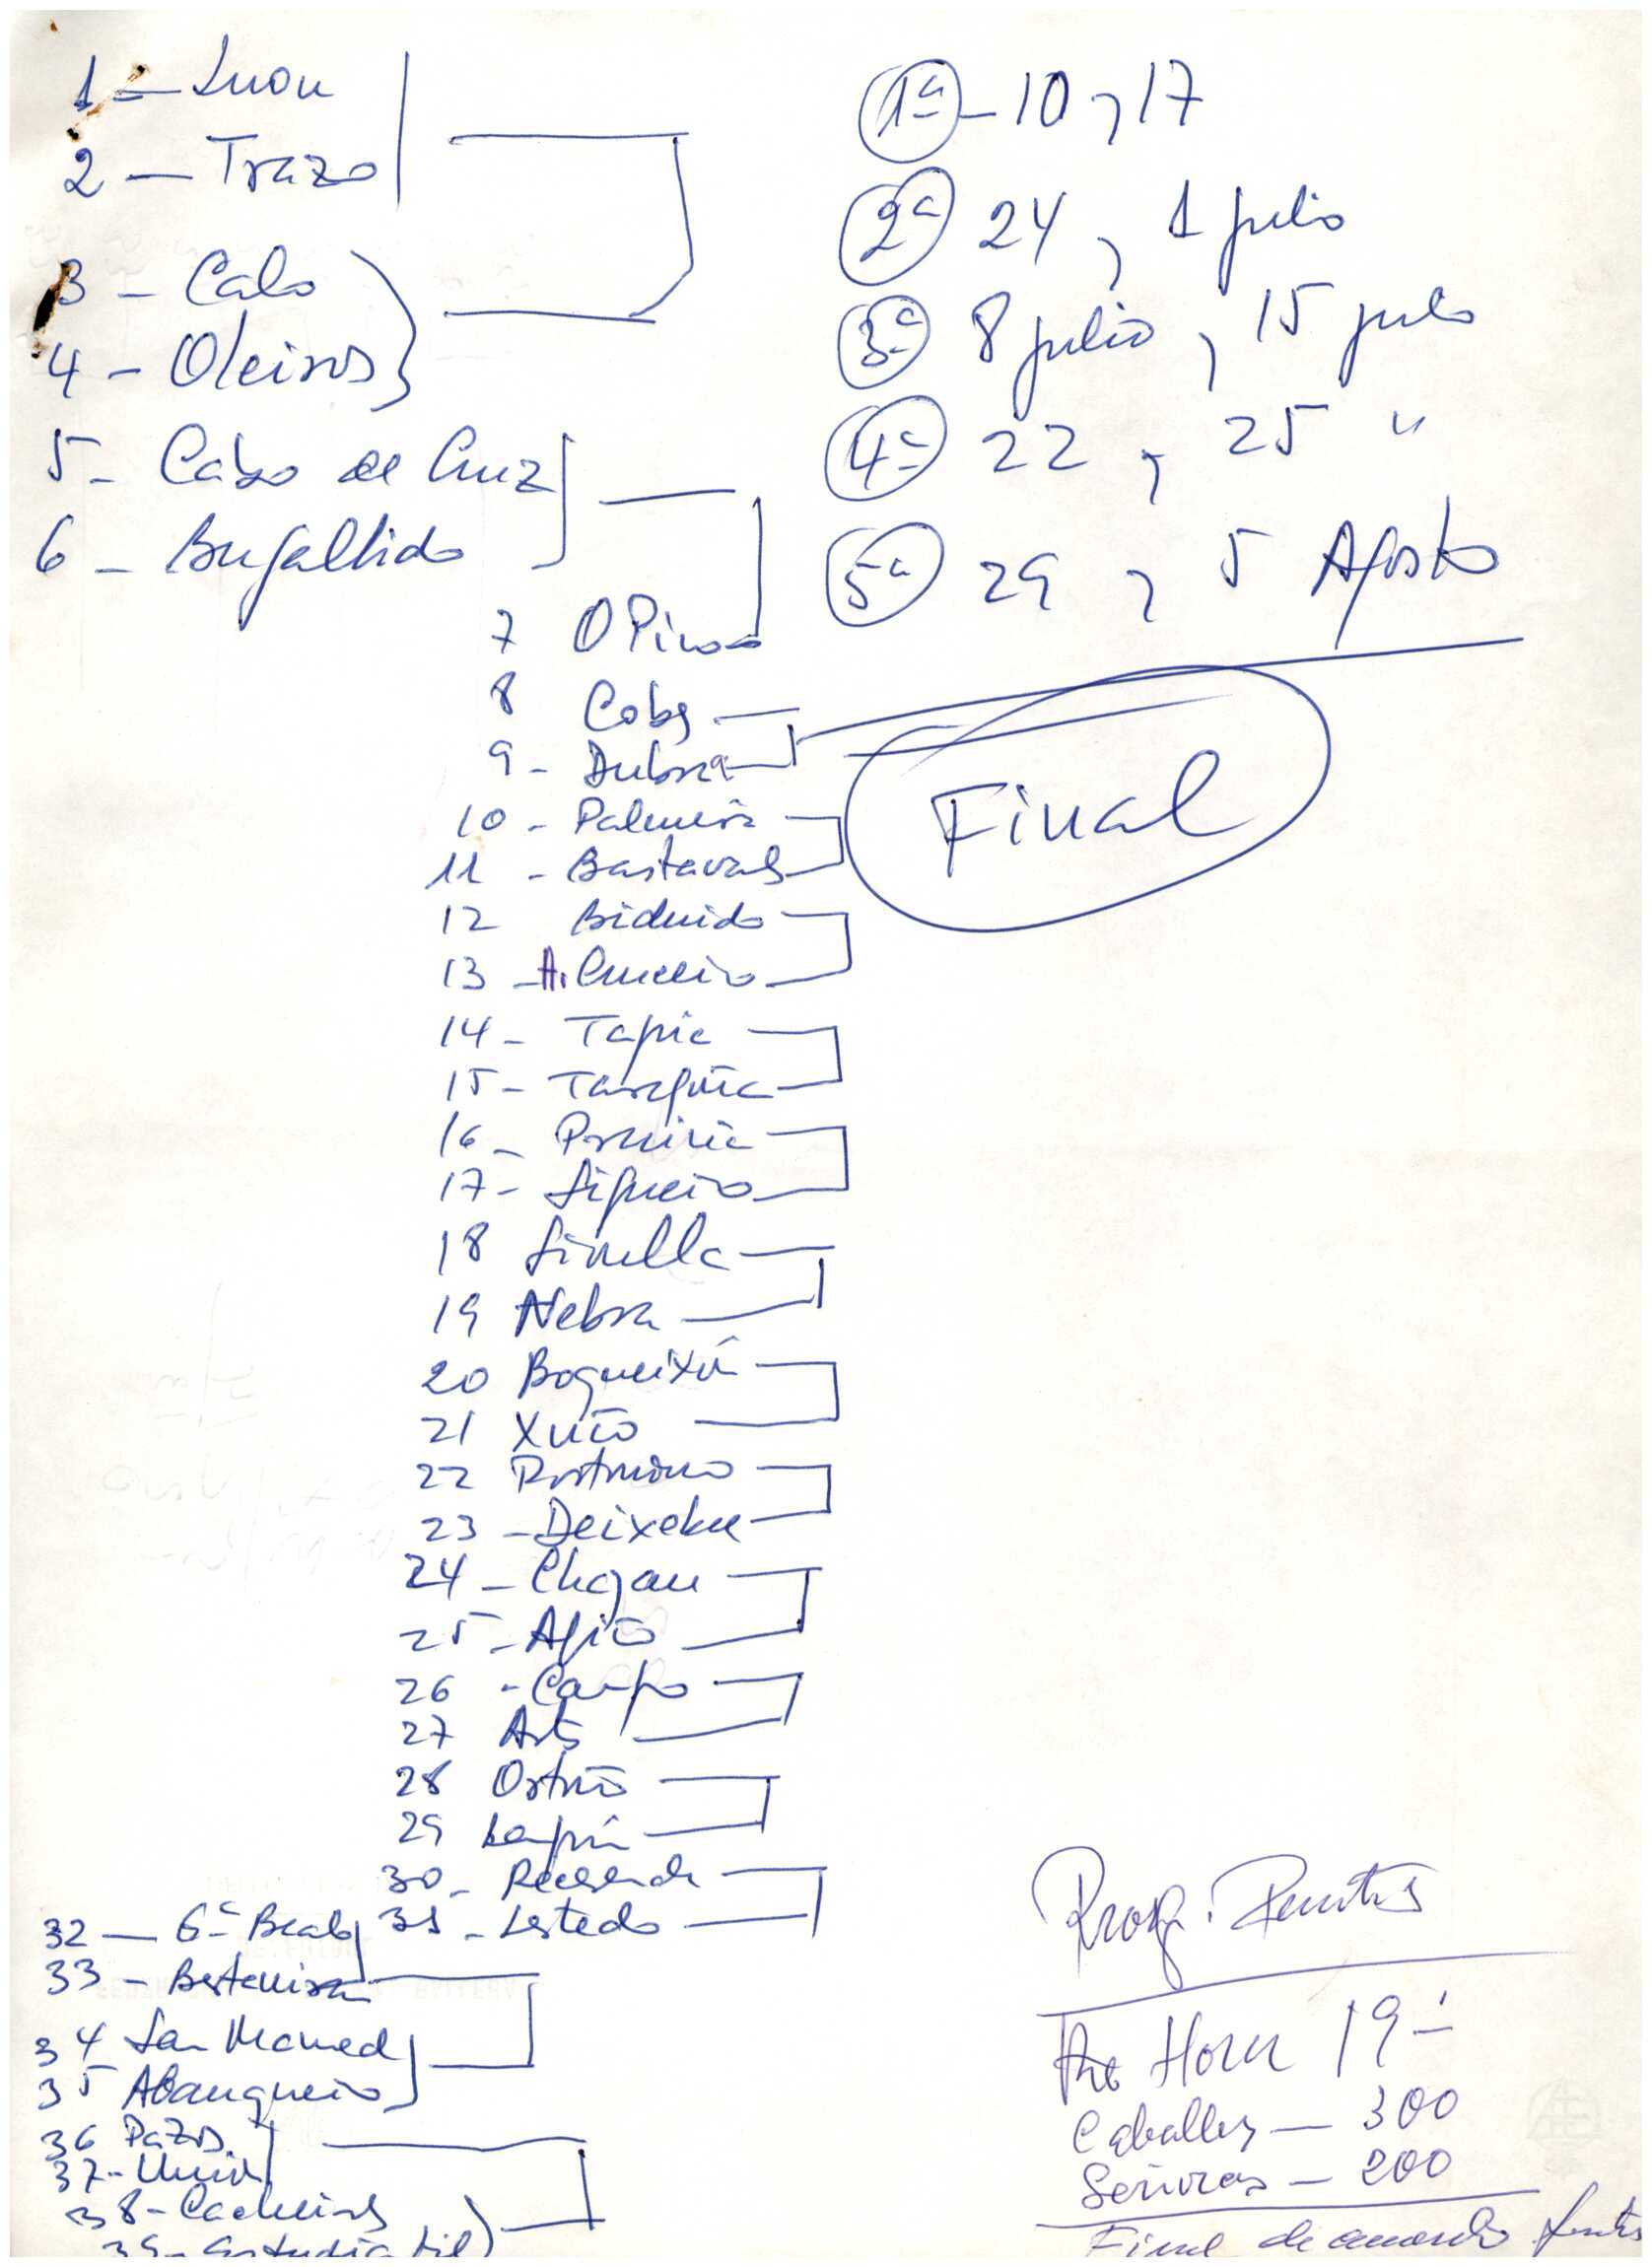 1 - Luou
2 - Trazo
3 - Calo
4 - Oleiros
5 - Cabo de Cruz
6 - Bugallido
7 O Pino
8 Cobas
9 - Dubra
10 - Palmeira
11 - Bastavales
12 Biduido
13 - A. Cruceiro
14 - Tapia
15 - Taragoña
16 - Proviño
17 - Sigueiro
18 Sinella
19 Nebra
20 Boqueixón
21 Xuño
22 Portomouro
23 - Deixebre
24 - Chajan
25 - Agiño
26 - Campo
27 Artes
28 Ortoño
29 Lampai
30 - Recesende
31 - Lestedo
32 - Gª Beal
33 - Bertamirans
34 San Mamed
35 Abanqueiro
36 Pazos
37 - Muiño
38 - Cacheiras
39 - Estudiantil
1ª - 10 y 17
2ª 24 y 1 julio
3ª 8 julio y 15 julio
4ª 22 y 25 "
5ª 29 y 5 Agosto
Final
Prog. Puntos
Hora 19
Caballeros - 300
Señoras - 200
Final de acuerdo